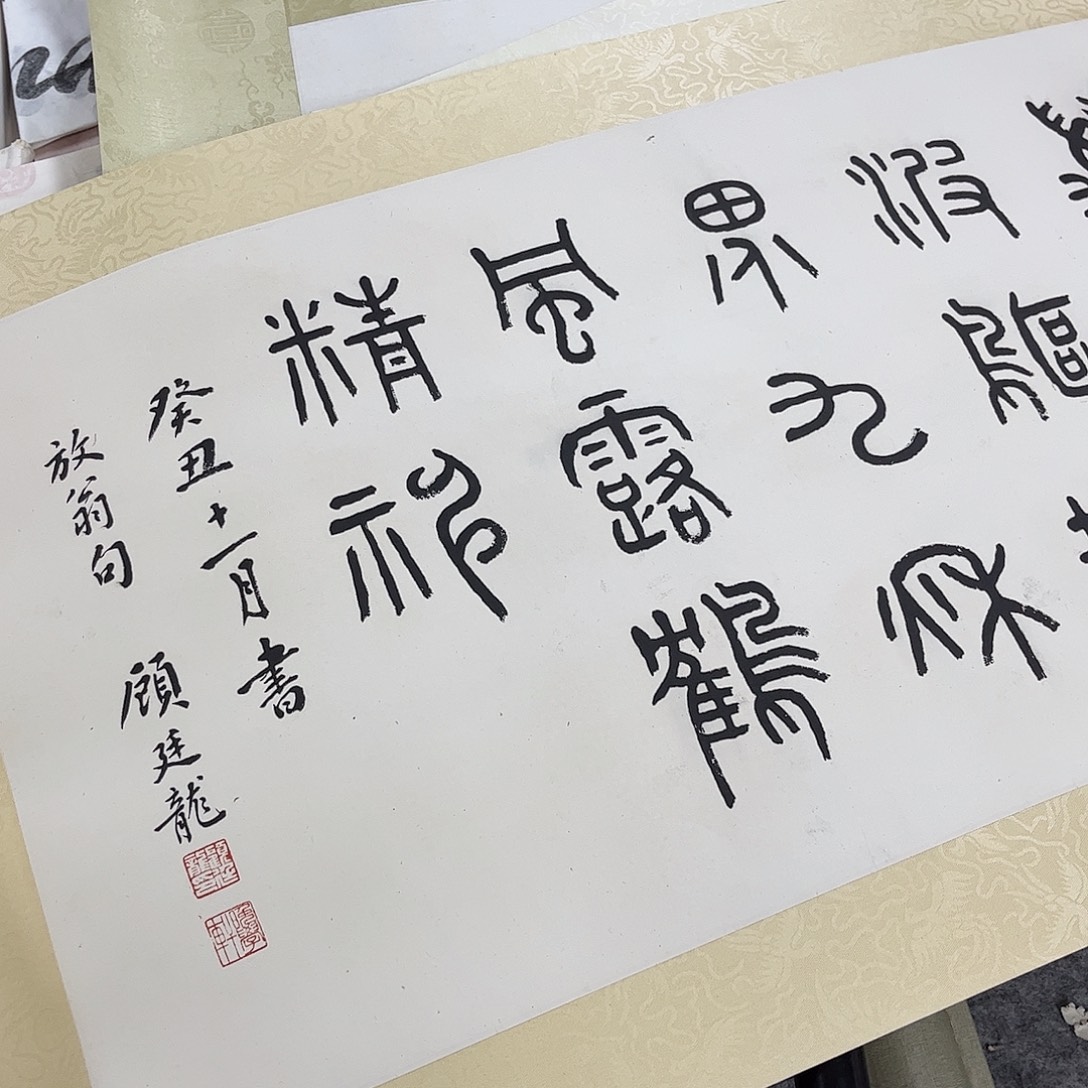 波鷗
界九秋
風露鶴
精神
癸丑十一月書
放翁句
顧廷龍